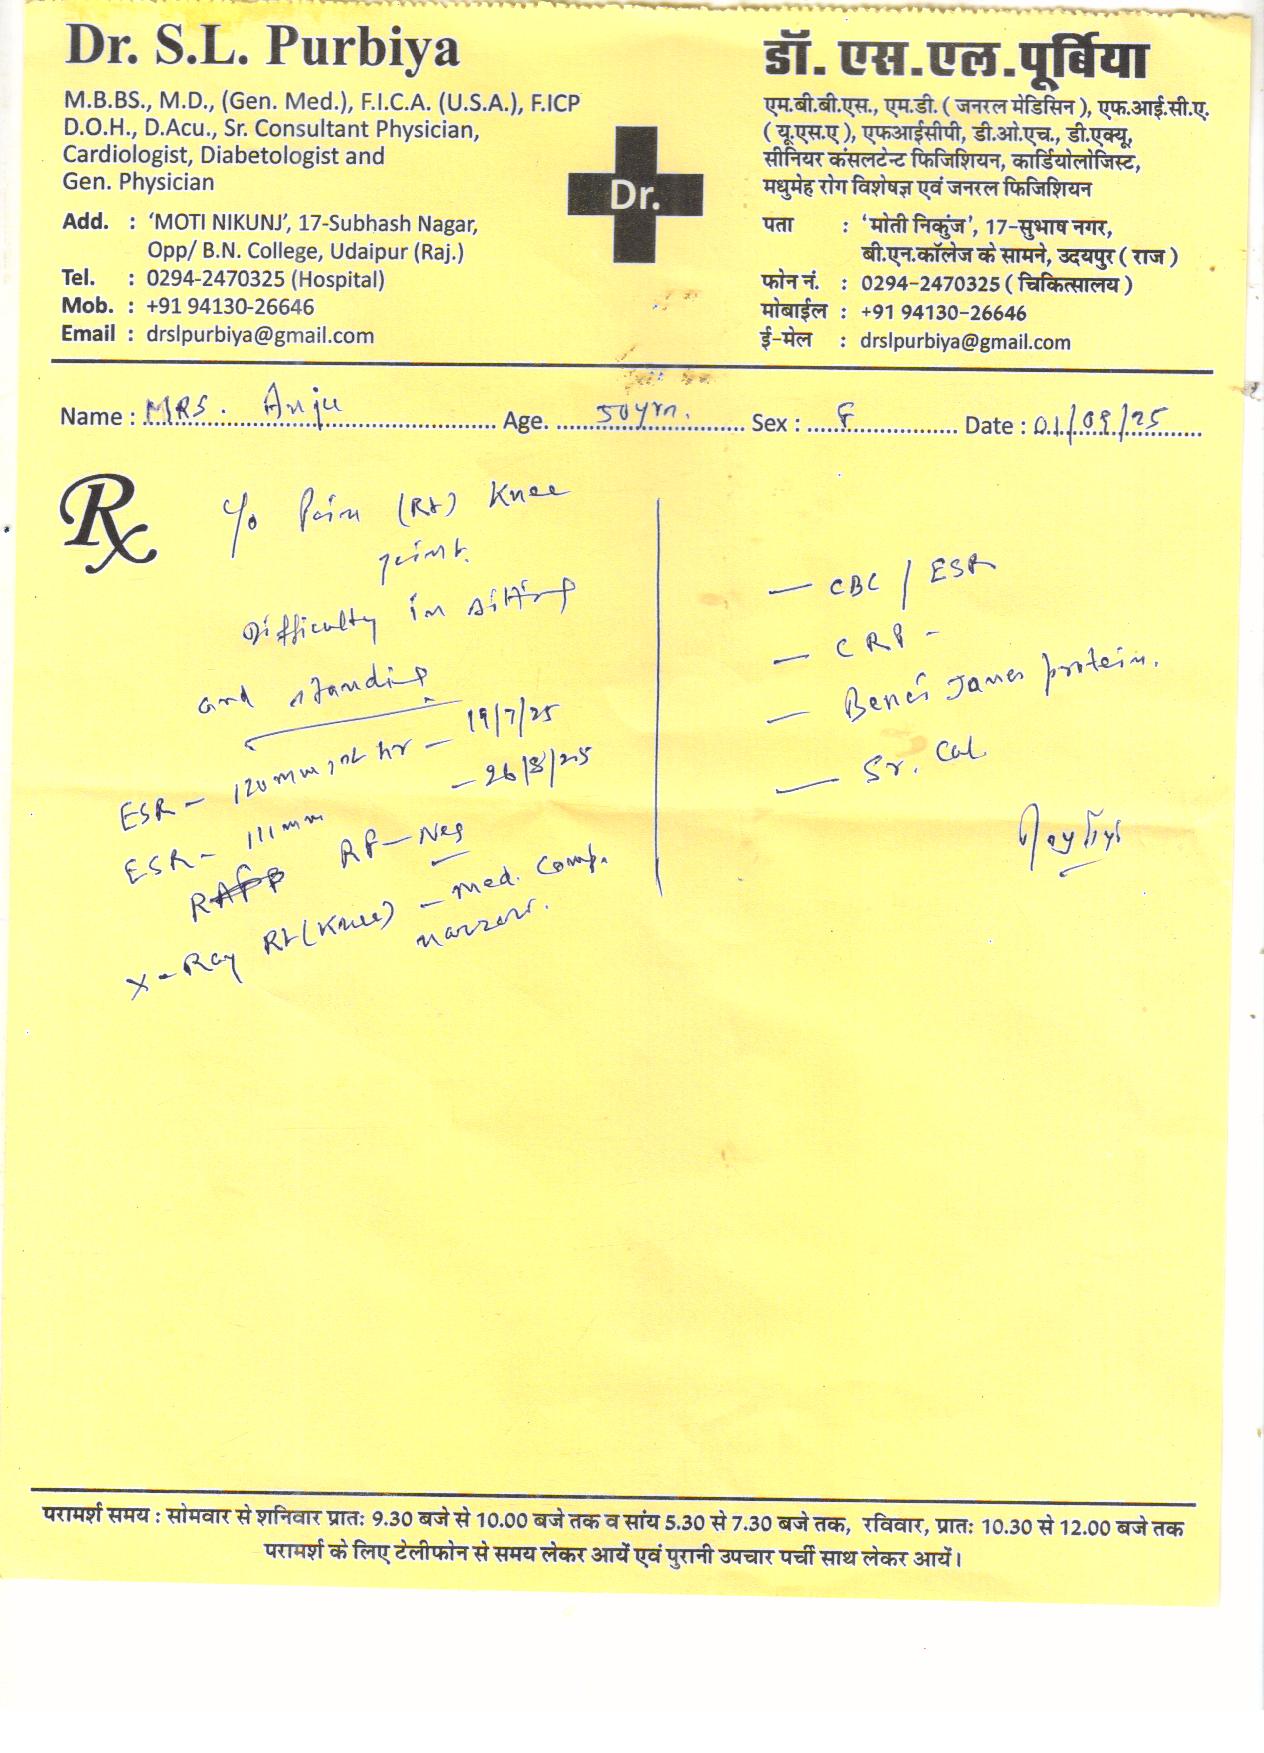 Dr. S.L. Purbiya
M.B.BS., M.D., (Gen. Med.), F.I.C.A. (U.S.A.), F.ICP
D.O.H., D.Acu., Sr. Consultant Physician,
Cardiologist, Diabetologist and
Gen. Physician
Add. : ‘MOTI NIKUNJ’, 17-Subhash Nagar,
Opp/ B.N. College, Udaipur (Raj.)
Tel. : 0294-2470325 (Hospital)
Mob. : +91 94130-26646
Email : drslpurbiya@gmail.com
Dr.
डॉ. एस.एल.पूर्बिया
एम.बी.बी.एस., एम.डी. ( जनरल मेडिसिन ), एफ.आई.सी.ए.
( यू.एस.ए ), एफआईसीपी, डी.ओ.एच., डी.एक्यू,
सीनियर कंसलटेन्ट फिजिशियन, कार्डियोलोजिस्ट,
मधुमेह रोग विशेषज्ञ एवं जनरल फिजिशियन
पता : ‘मोती निकुंज’, 17-सुभाष नगर,
बी.एन.कॉलेज के सामने, उदयपुर ( राज )
फोन नं. : 0294-2470325 ( चिकित्सालय )
मोबाईल : +91 94130-26646
ई-मेल : drslpurbiya@gmail.com
Name : MRS. Anju Age. 50 yrs. Sex : F Date : 01/09/25
Rx
c/o Pain (Rt) Knee
joint.
Difficulty in sitting
and standing
ESR - 120 mm 1st hr - 19/7/25
ESR - 111 mm - 26/8/25
RF - Neg
X-Ray Rt (Knee) - Med. Comp.
narrow.
- CBC / ESR
- CRP -
- Bence Jones protein.
- Sr. Cal
परामर्श समय : सोमवार से शनिवार प्रातः 9.30 बजे से 10.00 बजे तक व सांय 5.30 से 7.30 बजे तक, रविवार, प्रातः 10.30 से 12.00 बजे तक
परामर्श के लिए टेलीफोन से समय लेकर आयें एवं पुरानी उपचार पर्ची साथ लेकर आयें।